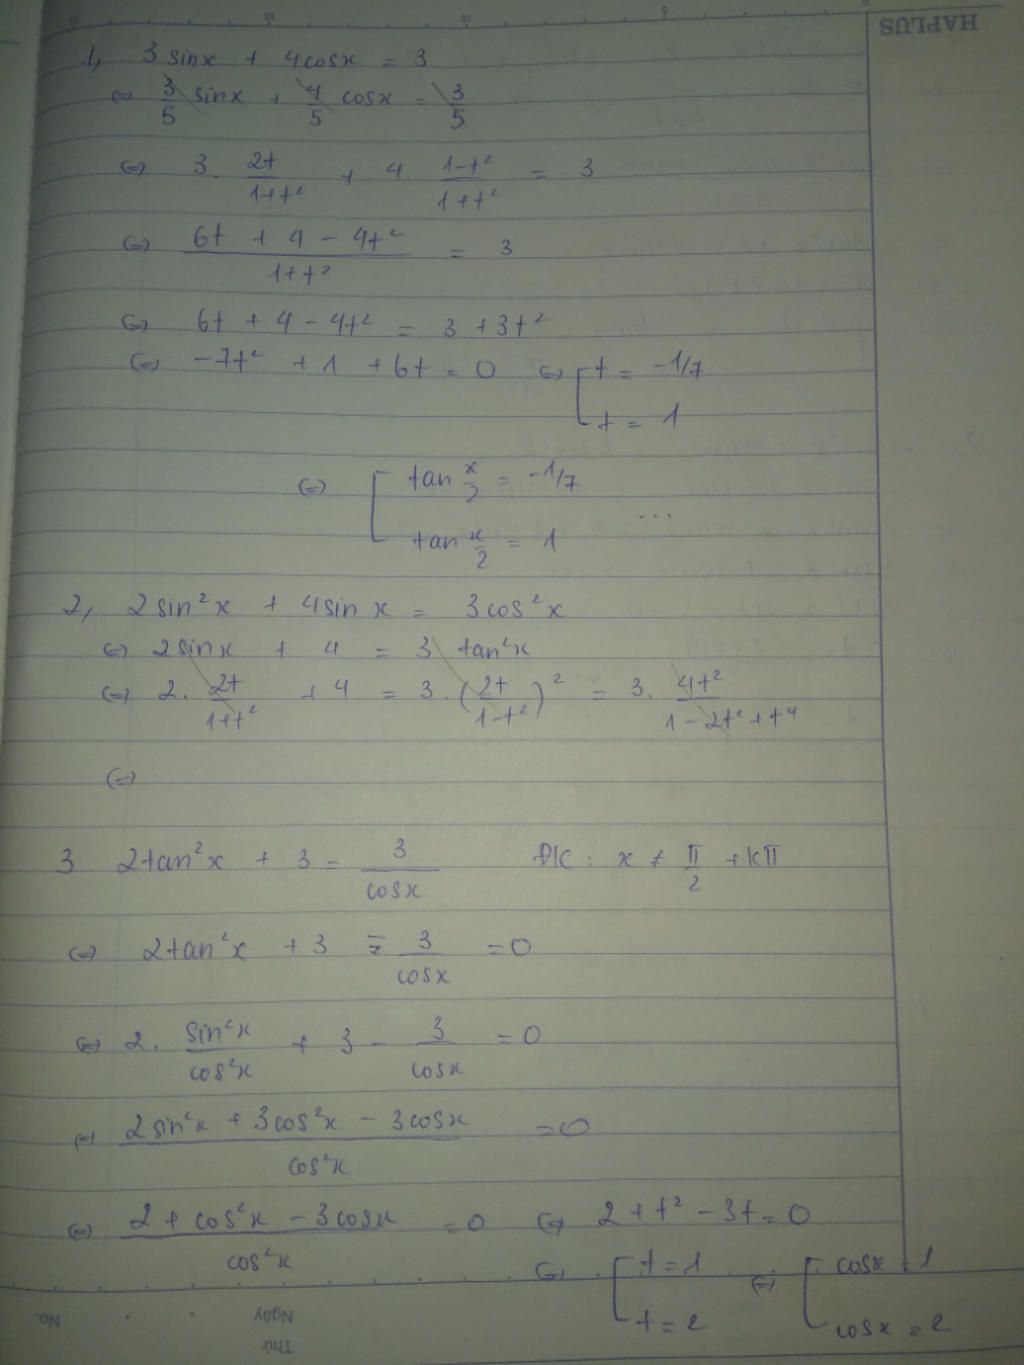 HAPLUS
1, 3 sinx + 4cosx = 3
(=) 3/5 sinx + 4/5 cosx = 3/5
(=) 3. 2t/1+t² + 4. 1-t²/1+t² = 3
(=) 6t + 4 - 4t²/1+t² = 3
(=) 6t + 4 - 4t² = 3 + 3t²
(=) -7t² + 1 + 6t = 0 (=) [ t = -1/7
t = 1
(=) [ tan x/2 = -1/7
...
tan x/2 = 1
2, 2sin²x + 4sin x = 3cos²x
(=) 2sinx + 4 = 3 tan²x
(=) 2. 2t/1+t² + 4 = 3.(2t/1-t²)² = 3. 4t²/1-2t²+t⁴
(=)
3. 2tan²x + 3 = 3/cosx ĐK: x ≠ π/2 + kπ
(=) 2tan²x + 3 - 3/cosx = 0
(=) 2. sin²x/cos²x + 3 - 3/cosx = 0
(=) 2sin²x + 3cos²x - 3cosx/cos²x = 0
(=) 2 + cos²x - 3cosx/cos²x = 0 (=) 2 + t² - 3t = 0
(=) [ t = 1 (=) [ cosx = 1
t = 2 cosx = 2
No.
Ngày
Thứ